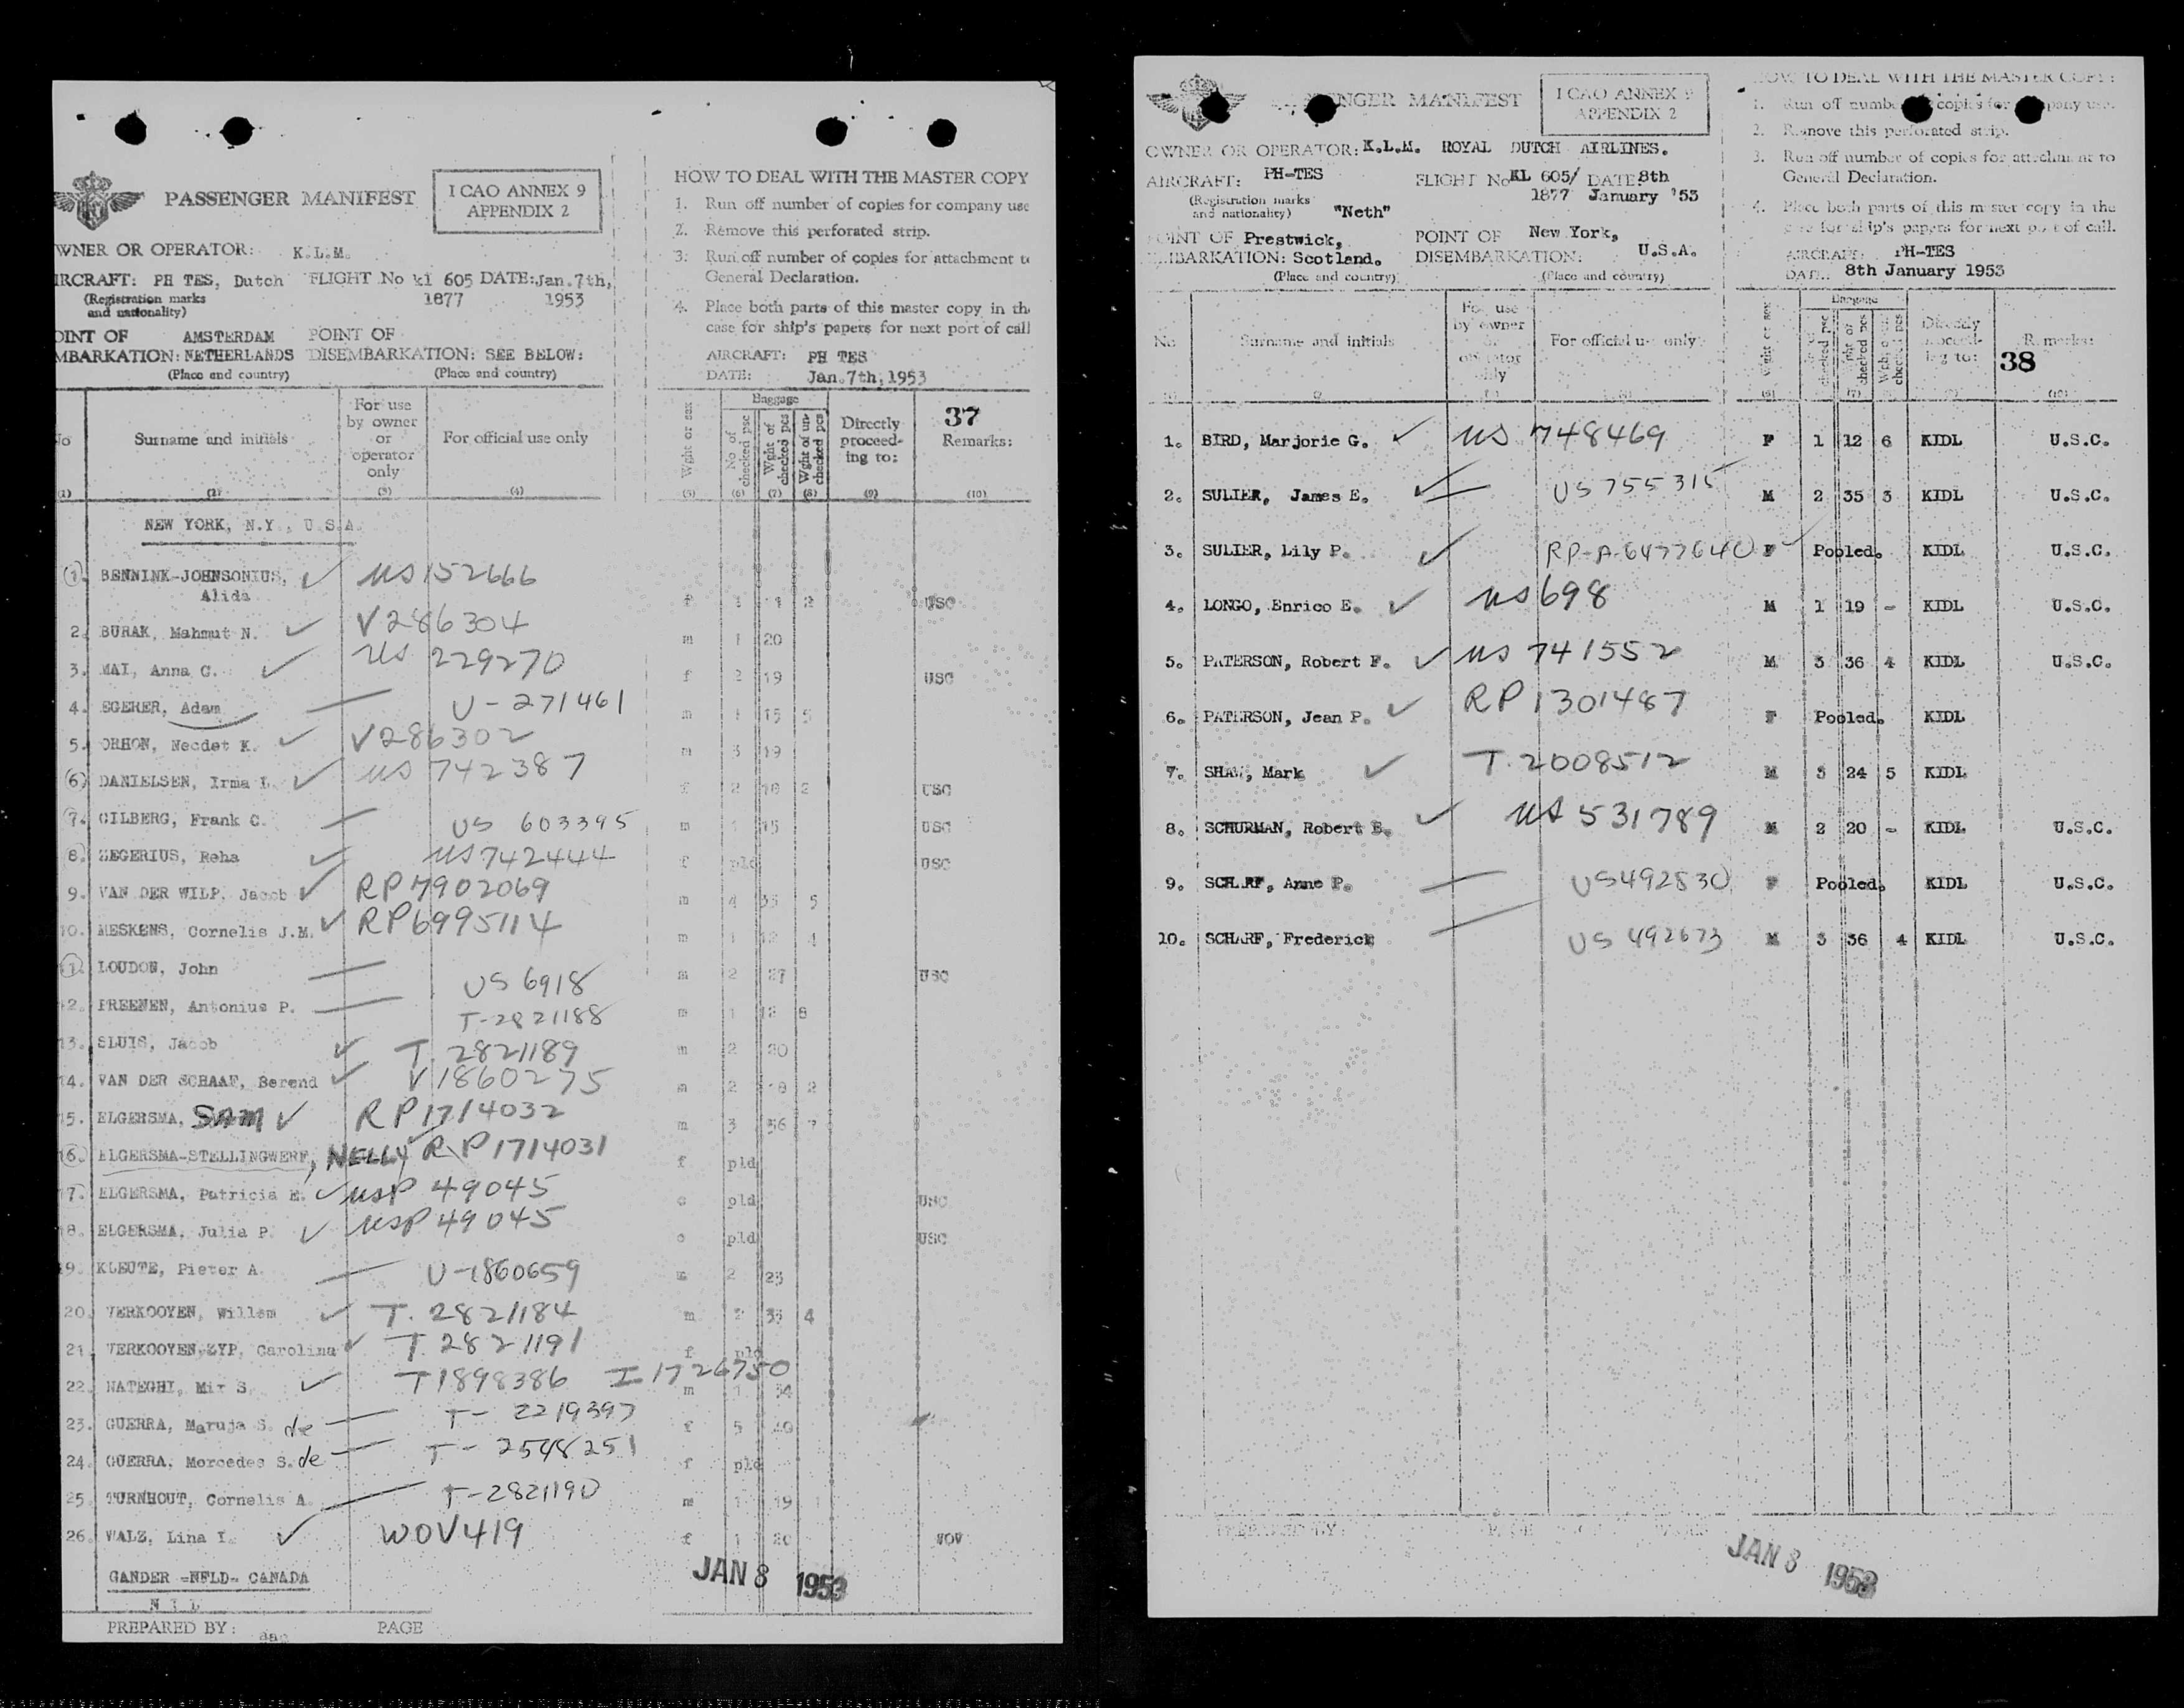 PASSENGER MANIFEST
I CAO ANNEX 9
APPENDIX 2
WNER OR OPERATOR: K.L.M.
IRCRAFT: PH TES, Dutch FLIGHT No kl 605 DATE: Jan.7th,
(Registration marks 1877 1953
and nationality)
OINT OF AMSTERDAM POINT OF
MBARKATION: NETHERLANDS DISEMBARKATION: SEE BELOW:
(Place and country) (Place and country)
HOW TO DEAL WITH THE MASTER COPY
1. Run off number of copies for company use
2. Remove this perforated strip.
3. Run off number of copies for attachment to
General Declaration.
4. Place both parts of this master copy in the
case for ship's papers for next port of call
AIRCRAFT: PH TES
DATE: Jan.7th,1953
No Surname and initials For use by owner or operator only For official use only Wght or sex Baggage No of checked psc Wght of checked pcs Wght of un-checked pcs Directly proceed-ing to: 37 Remarks:
(1) (2) (3) (4) (5) (6) (7) (8) (9) (10)
NEW YORK, N.Y., U.S.A.
1. BENNINK-JOHNSONIUS, US 152666
Alida f 2 USC
2. BURAK, Mahmut N. V286304 m 1 20
3. MAI, Anna C. US 229270 f 2 19 USC
4. EGERER, Adam U-271461 m 1 15 5
5. ORHON, Necdet K. V286302 m 3 19
6. DANIELSEN, Irma I. US 742387 f 2 18 2 USC
7. GILBERG, Frank C. US 603395 m 1 15 USC
8. ZEGERIUS, Reha US 742444 f pld USC
9. VAN DER WILP, Jacob RP7902069 m 4 5
10. MESKENS, Cornelis J.M. RP6995114 m 1 4
11. LOUDON, John US 6918 m 2 27 USC
12. PREENEN, Antonius P. T-2821188 m 1 8
13. SLUIS, Jacob T.2821189 m 2 20
14. VAN DER SCHAAF, Berend V1860275 m 2 2
15. ELGERSMA, SAM RP1714032 m 3 56 7
16. ELGERSMA-STELLINGWERF, NELLY RP1714031 f pld
17. ELGERSMA, Patricia E. USP 49045 c pld USC
18. ELGERSMA, Julia P. USP 49045 c pld USC
19. KLEUTE, Pieter A. U-1860659 m 2 23
20. VERKOOYEN, Willem T.2821184 m 2 4
21. VERKOOYEN-ZYP, Carolina T.2821191 f pld
22. NATEGHI, Mir S. T1898386 I 1726750 m 1
23. GUERRA, Maruja S. de T-2219397 f 5
24. GUERRA, Mercedes S. de T-2548251 f pld
25. TURNHOUT, Cornelis A. T-2821190 m 1 19 1
26. WALZ, Lina I. WOV419 f 1 20 WOV
GANDER -NFLD- CANADA
N I L
JAN 8 1953
PREPARED BY: PAGE
NGER MANIFEST
I CAO ANNEX 9
APPENDIX 2
OWNER OR OPERATOR: K.L.M. ROYAL DUTCH AIRLINES.
AIRCRAFT: PH-TES FLIGHT No KL 605/ DATE: 8th
(Registration marks 1877 January '53
and nationality) "Neth"
POINT OF Prestwick, POINT OF New York,
MBARKATION: Scotland. DISEMBARKATION: U.S.A.
(Place and country) (Place and country)
HOW TO DEAL WITH THE MASTER COPY:
1. Run off number copies for company use.
2. Remove this perforated strip.
3. Run off number of copies for attachment to
General Declaration.
4. Place both parts of this master copy in the
case for ship's papers for next port of call.
AIRCRAFT: PH-TES
DATE: 8th January 1953
No Surname and initials For use by owner or operator only For official use only Wght or sex Baggage checked psc Wght of checked pcs Wght of un-checked pcs Directly proceed-ing to: 38 Remarks:
1. BIRD, Marjorie G. US 748469 F 1 12 6 KIDL U.S.C.
2. SULIER, James E. US 755315 M 2 35 3 KIDL U.S.C.
3. SULIER, Lily P. RP-A-6477640 F Pooled. KIDL U.S.C.
4. LONGO, Enrico E. US 698 M 1 19 - KIDL U.S.C.
5. PATERSON, Robert F. US 741552 M 3 36 4 KIDL U.S.C.
6. PATERSON, Jean P. RP1301487 F Pooled. KIDL
7. SHAW, Mark T.2008512 M 3 24 5 KIDL
8. SCHURMAN, Robert B. US 531789 M 2 20 - KIDL U.S.C.
9. SCHARF, Anne P. US492830 F Pooled. KIDL U.S.C.
10. SCHARF, Frederick US 492673 M 3 36 4 KIDL U.S.C.
PREPARED BY:
JAN 8 1953